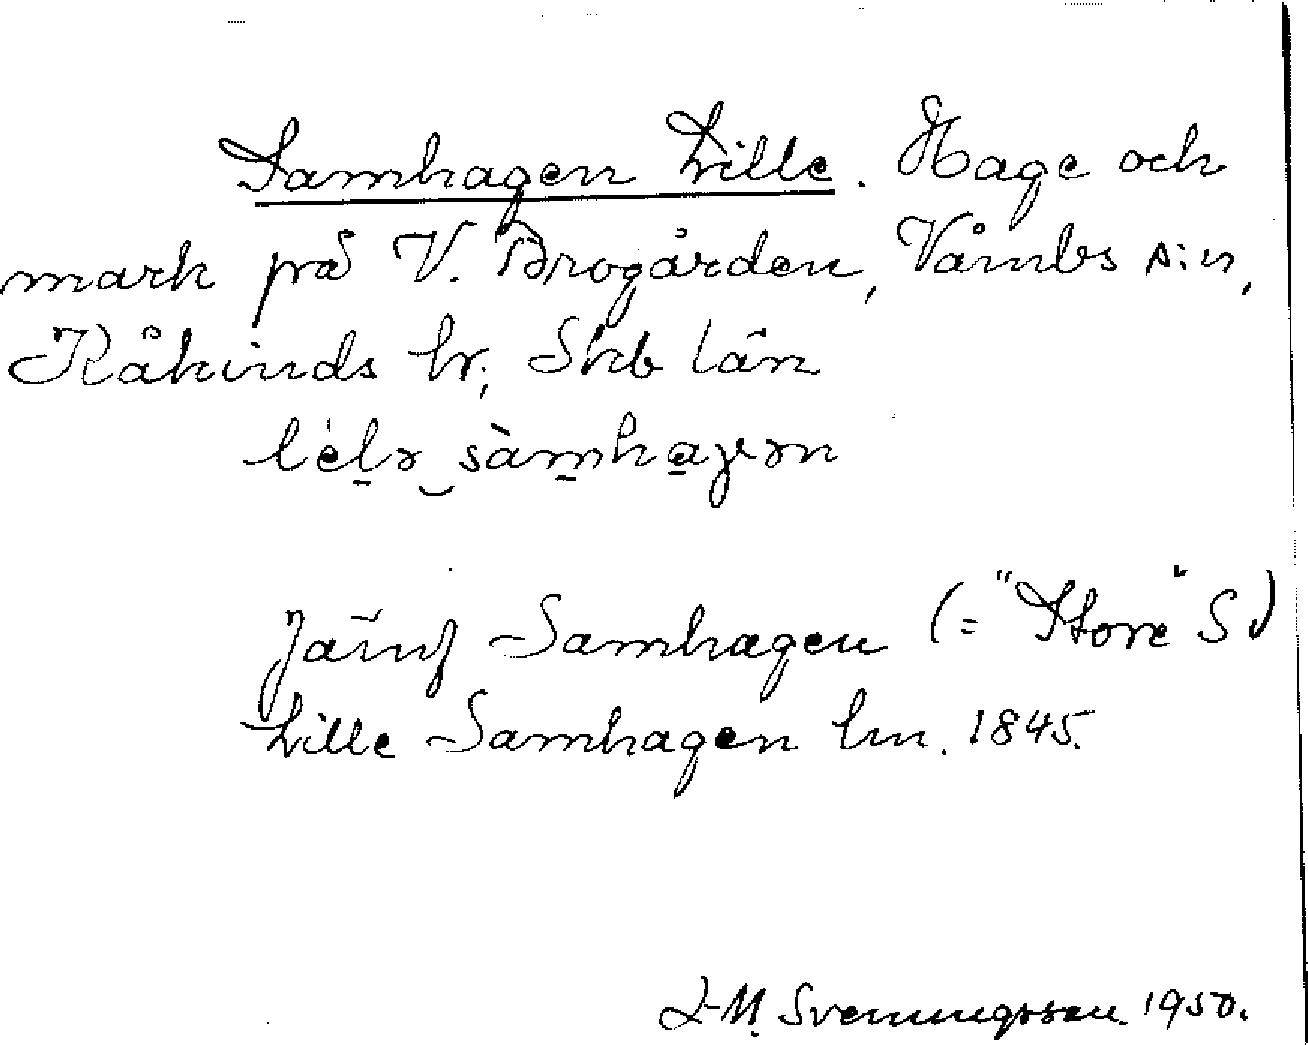 Samhagen Lille. Hage och
mark på V. Brogården, Våmbs s:n,
Kåkinds hr, Skb län
Jämf Samhagen (= "Store" S)
Lille Samhagen hm. 1845.
Svenungsson 1950.